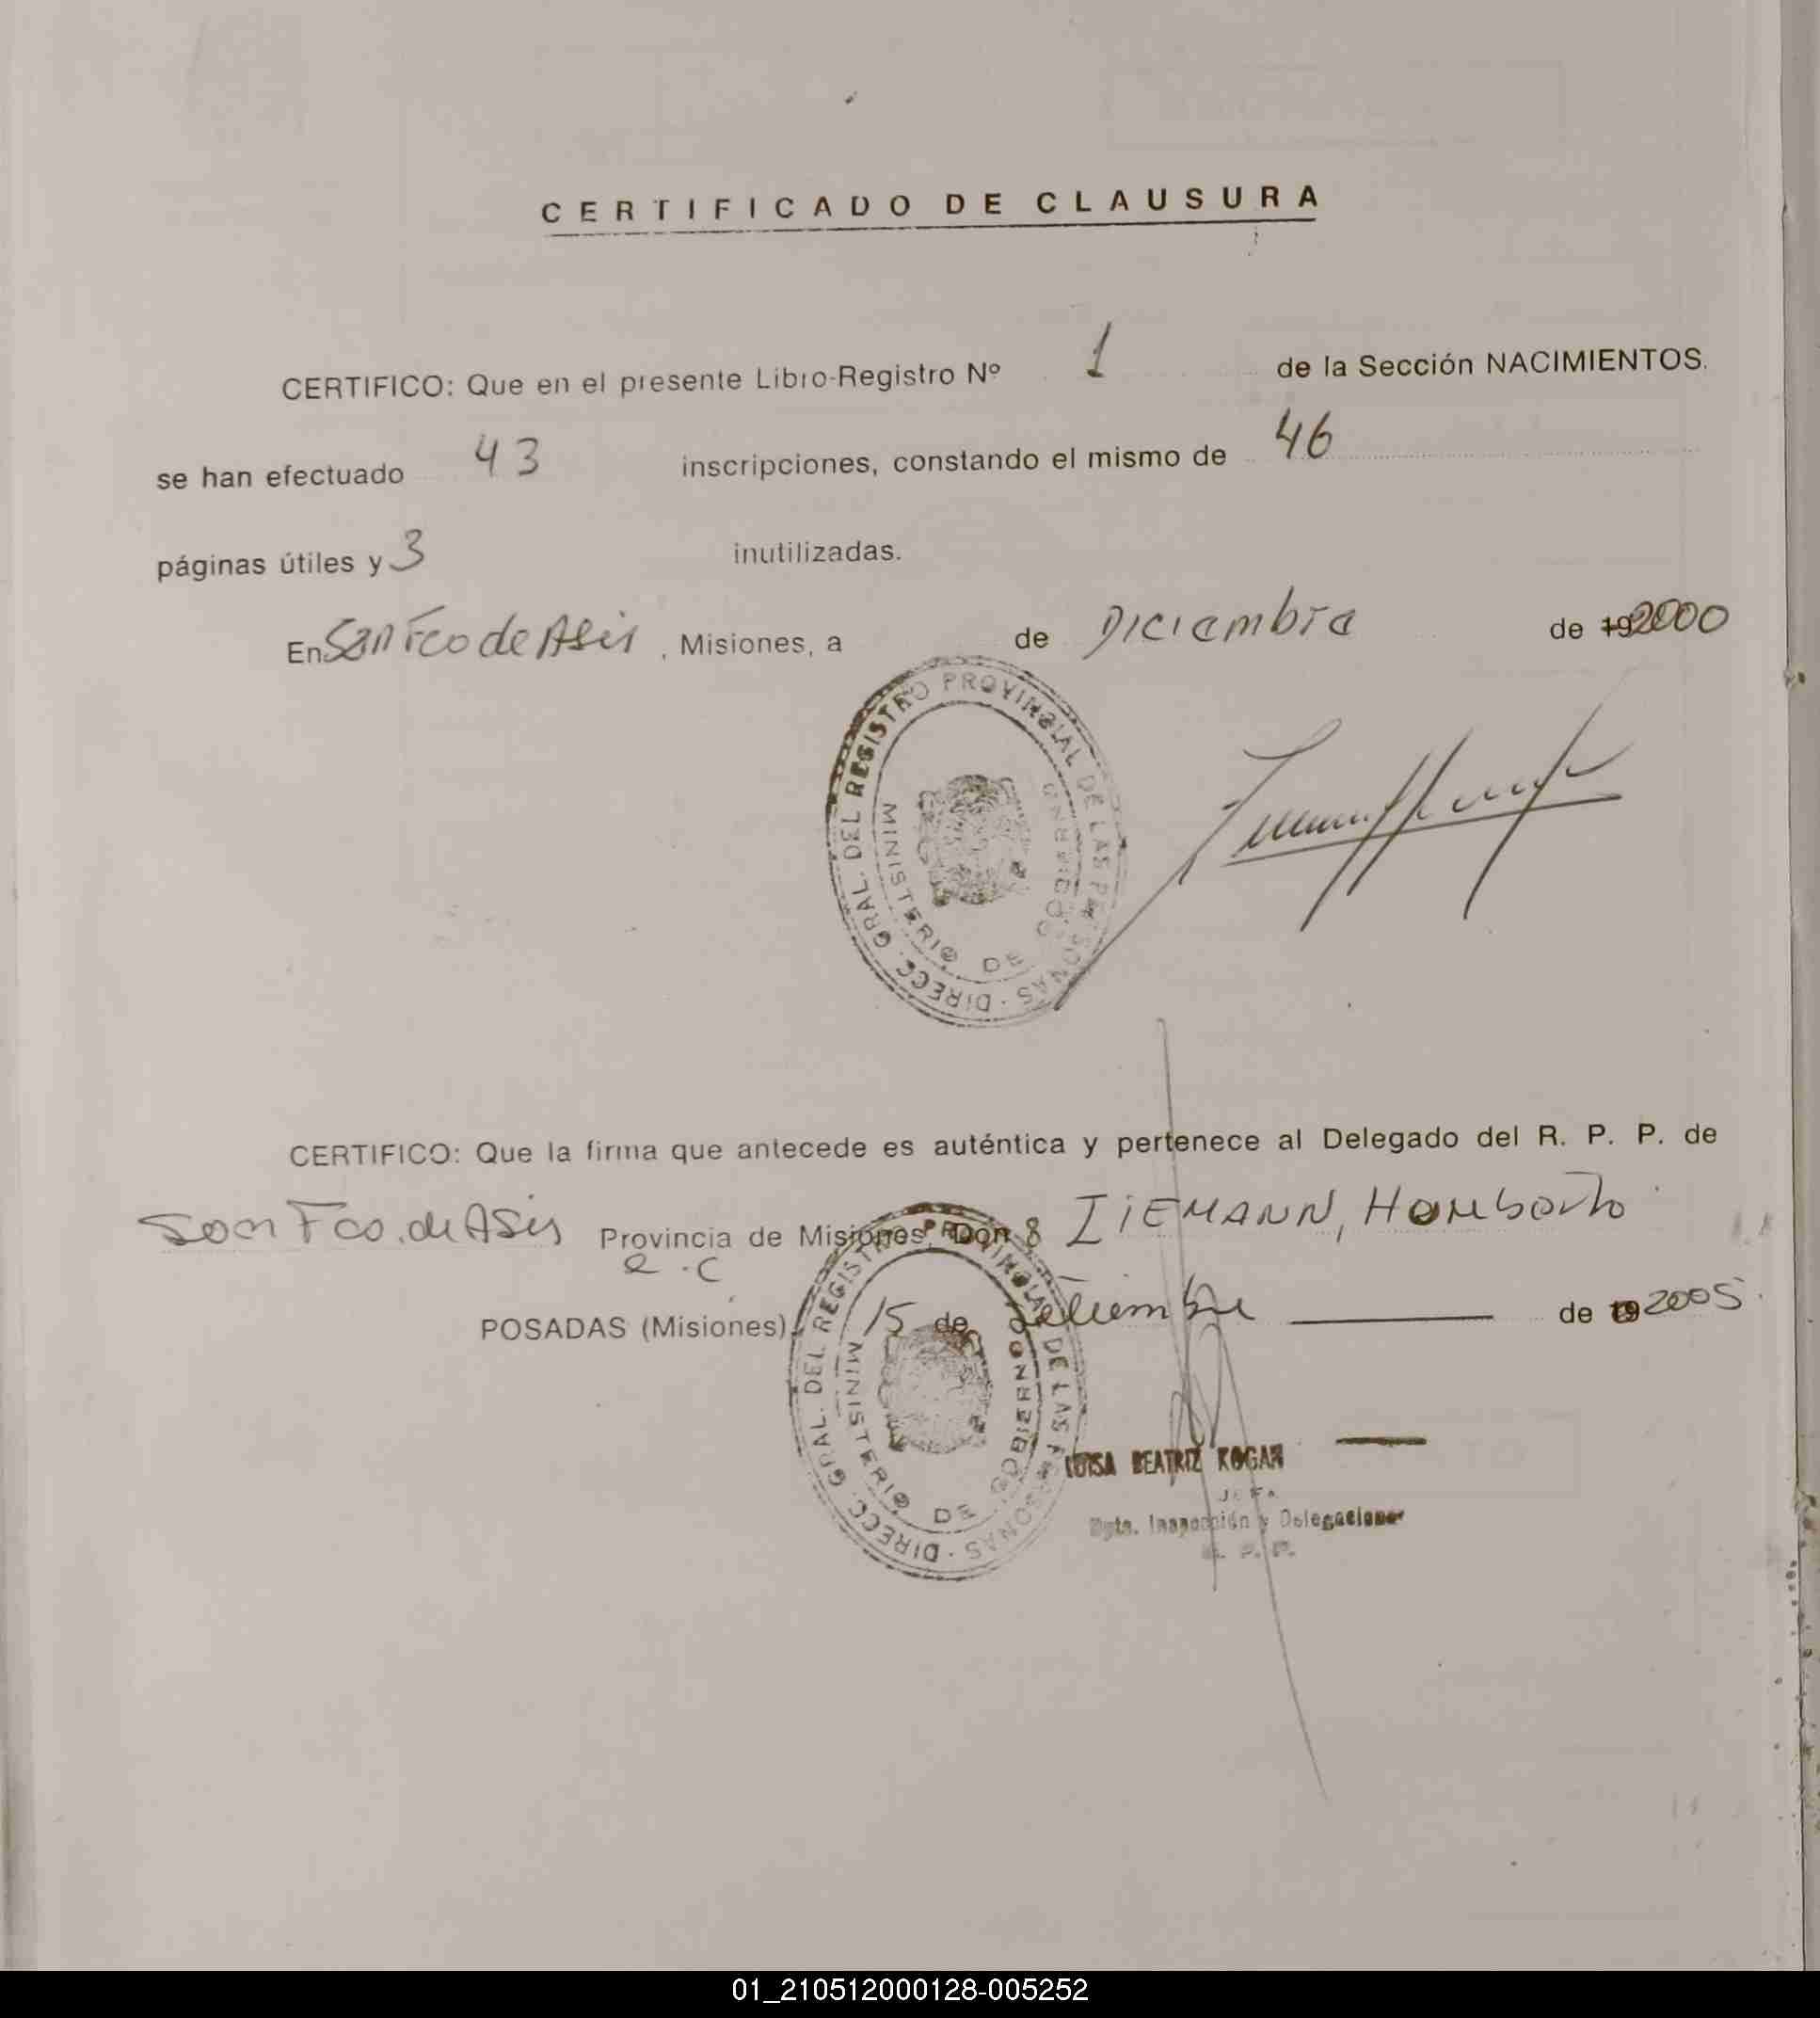 CERTIFICADO DE CLAUSURA
CERTIFICO: Que en el presente Libro-Registro Nº 1 de la Sección NACIMIENTOS.
se han efectuado 43 inscripciones, constando el mismo de 46
páginas útiles y 3 inutilizadas.
En San Fco de Asis, Misiones, a de Diciembre de 192000
DIRECC. GRAL. DEL REGISTRO PROVINCIAL DE LAS PERSONAS
MINISTERIO DE GOBIERNO
CERTIFICO: Que la firma que antecede es auténtica y pertenece al Delegado del R. P. P. de
San Fco. de Asis Provincia de Misiones, Don IIEMANN, Homberto
POSADAS (Misiones), 15 de Setiembre de 19 2005
DIRECC. GRAL. DEL REGISTRO PROVINCIAL DE LAS PERSONAS
MINISTERIO DE GOBIERNO
LUISA BEATRIZ KOGAN
JEFA
Dpto. Inspección y Delegaciones
R. P. P.
01_210512000128-005252